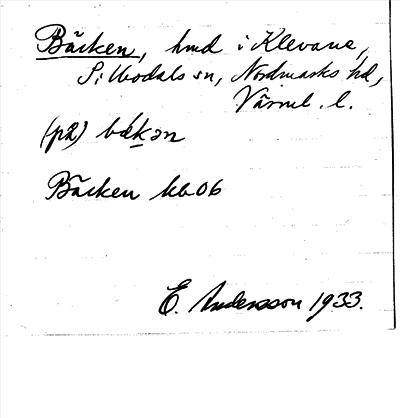 Bäcken, hmd i Klevane,
Sillbodals sn, Nordmarks hd,
Värml. l.
(på) bäkən
Bäcken kb06
E. Andersson 1933.